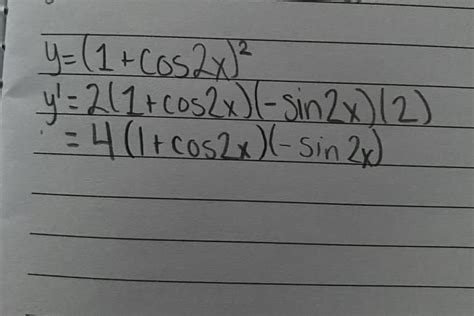 y=(1+cos2x)²
y'=2(1+cos2x)(-sin2x)(2)
=4(1+cos2x)(-sin2x)